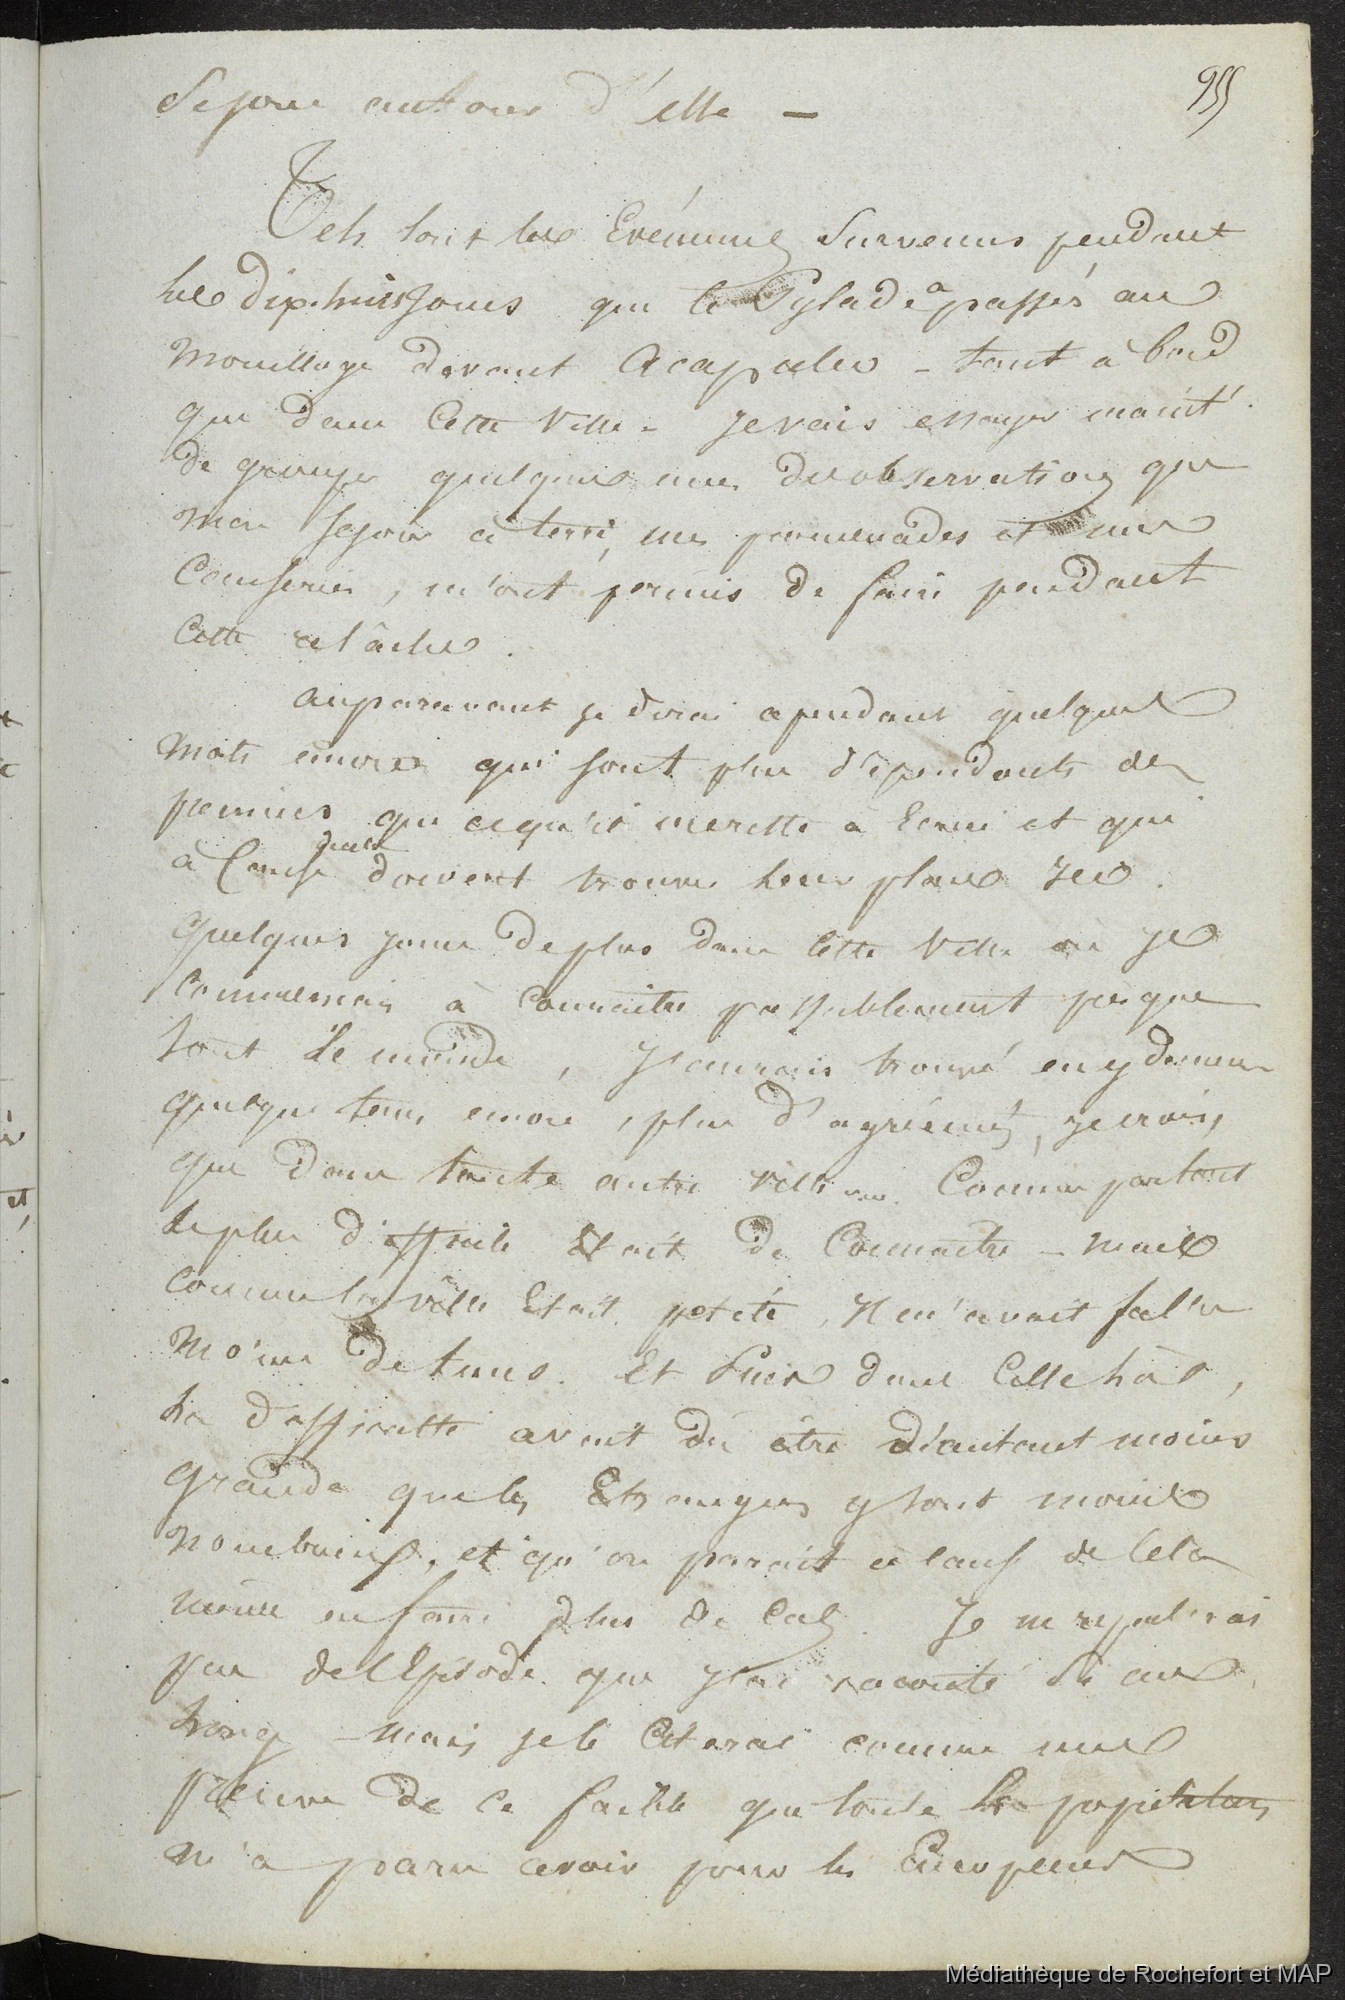 955
Sejour autour d'elle —
Tels sont les Evénemens survenus pendant
les dix-huit jours que le Pylade a passés au
mouillage devant Acapulco - tant à bord
que dans cette ville - je vais essayer maint.
de grouper quelques unes des observations que
mon sejour à terre, mes promenades et mes
causeries, m'ont permis de faire pendant
cette relâche.
auparavant je dirai cependant quelques
mots encore qui sont plus dépendants des
premiers que ce qu'il me reste à Ecrire et qui
à cause doivent trouver leur place Ici.
quelques jours de plus dans cette ville où je
commencais à connaître passablement presque
tout le monde, j'aurais trouvé en y demeur
quelque tems encore, plus d'agrément, je crois,
que dans toute autre ville ... Comme partout
le plus difficile Etait de connaître - mais
comme la ville Etait petite, il m'avait fallu
moins de tems. Et puis dans celle là,
la difficulté avait dû être d'autant moins
grande que les Etrangers y sont moins
nombreux, et qu'on parait à cause de cela
même en faire plus de cas. Je ne reparlerai
pas de l'Episode que j'ai raconté
long - mais je le citerai comme une
preuve de ce faible que toute la population
m'a paru avoir pour les Européens
Médiathèque de Rochefort et MAP